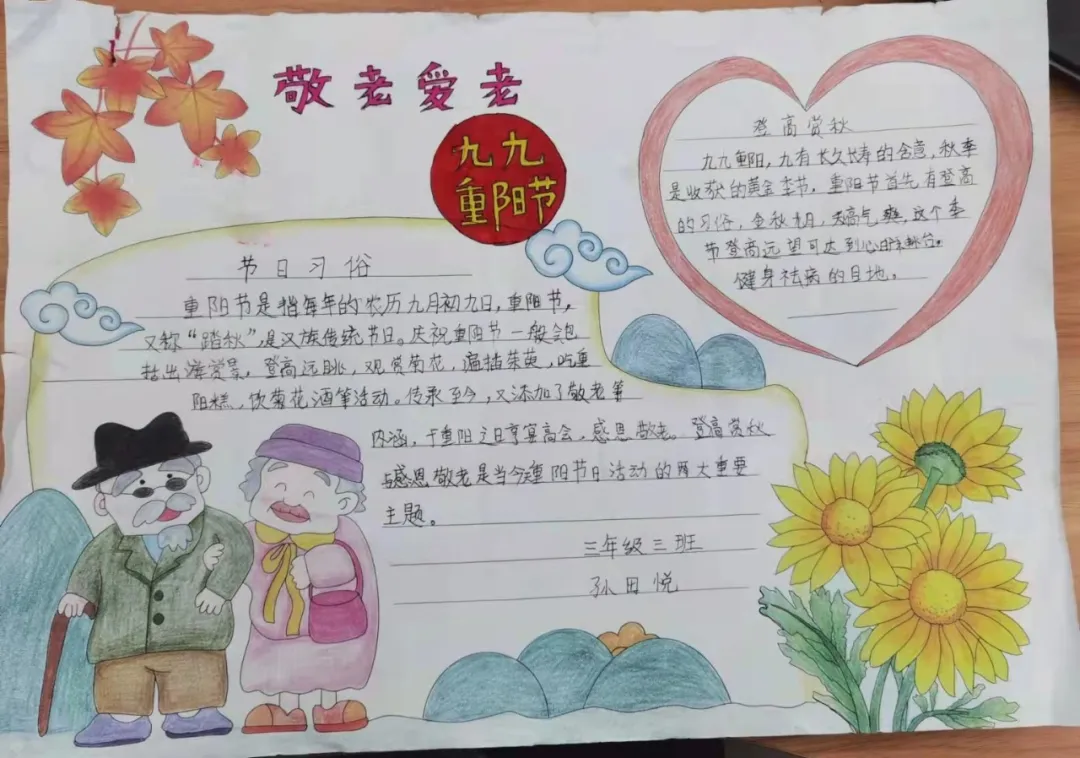 敬老爱老
九九
重阳节
节日习俗
重阳节是指每年的农历九月初九日，重阳节，
又称“踏秋”，是汉族传统节日。庆祝重阳节一般会包
括出游赏景，登高远眺，观赏菊花，遍插茱萸，吃重
阳糕，饮菊花酒等活动。传承至今，又添加了敬老等
内涵，于重阳之日享宴高会，感恩敬老。登高赏秋
与感恩敬老是当今重阳节日活动的两大重要
主题。
三年级三班
孙田悦
登高赏秋
九九重阳，九有长久长寿的含意，秋季
是收获的黄金季节，重阳节首先有登高
的习俗，金秋九月，天高气爽，这个季
节登高远望可达到心旷神怡。
健身祛病的目地。